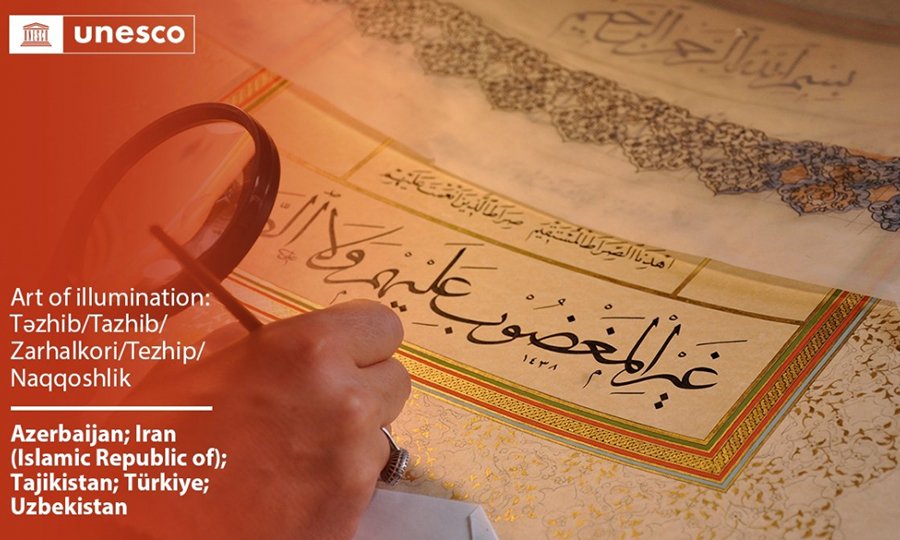 unesco
بسم الله الرحمن الرحيم
اهْدِنَا الصِّرَاطَ الْمُسْتَقِيمَ صِرَاطَ الَّذِينَ أَنْعَمْتَ عَلَيْهِمْ
غَيْرِ الْمَغْضُوبِ عَلَيْهِمْ وَلَا
١٤٣٨
Art of illumination:
Təzhib/Tazhib/
Zarhalkori/Tezhip/
Naqqoshlik
Azerbaijan; Iran
(Islamic Republic of);
Tajikistan; Türkiye;
Uzbekistan